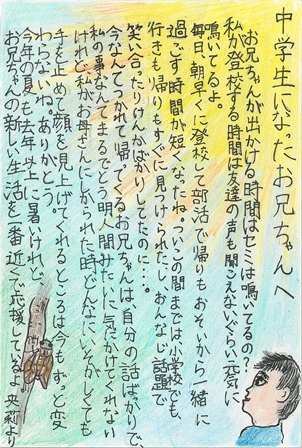 中学生になったお兄ちゃんへ
お兄ちゃんが出かける時間はセミは鳴いてるの?
私が登校する時間は友達の声も聞こえないぐらい元気に
鳴いてるよ。
毎日、朝早くに登校して部活で帰りもおそいから一緒に
過ごす時間が短くなったね。ついこの間までは小学校でも、
行きも帰りもすぐに見つけられたし、おんなじ話題で
笑い合ったりけんかばかりしてたのに…。
今なんてつかれて帰ってくるお兄ちゃんは、自分の話ばかりで、
私の事なんてまるでとう明人間みたいに気にかけてくれない
けれど、私がお母さんにしかられた時、どんなにいそがしくても
手を止めて顔を見上げてくれるところは今もずっと変
わらないね。ありがとう。
今年の夏も去年以上に暑いけれど、
お兄ちゃんの新しい生活を一番近くで応援しているよ。央莉より